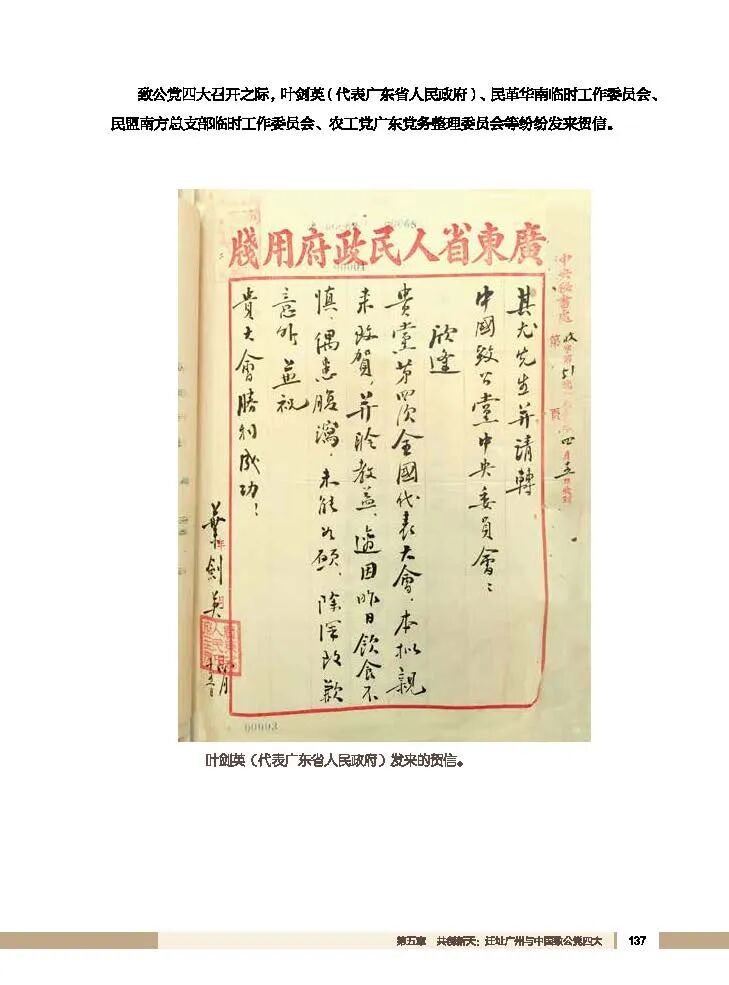 致公党四大召开之际，叶剑英（代表广东省人民政府）、民革华南临时工作委员会、
民盟南方总支部临时工作委员会、农工党广东党务整理委员会等纷纷发来贺信。
廣東省人民政府用牋
中央秘書處
第 頁
其尤先生并請轉
中國致公黨中央委員會：
欣逢
貴黨第四次全國代表大會，本拟親
来致賀，并聆教益，適因昨日飲食不
慎，偶患腹瀉，未能如願，除深致歉
意外，並祝
貴大會勝利成功！
葉劍英
00003
叶剑英（代表广东省人民政府）发来的贺信。
第五章 共创新天：迁址广州与中国致公党四大 137